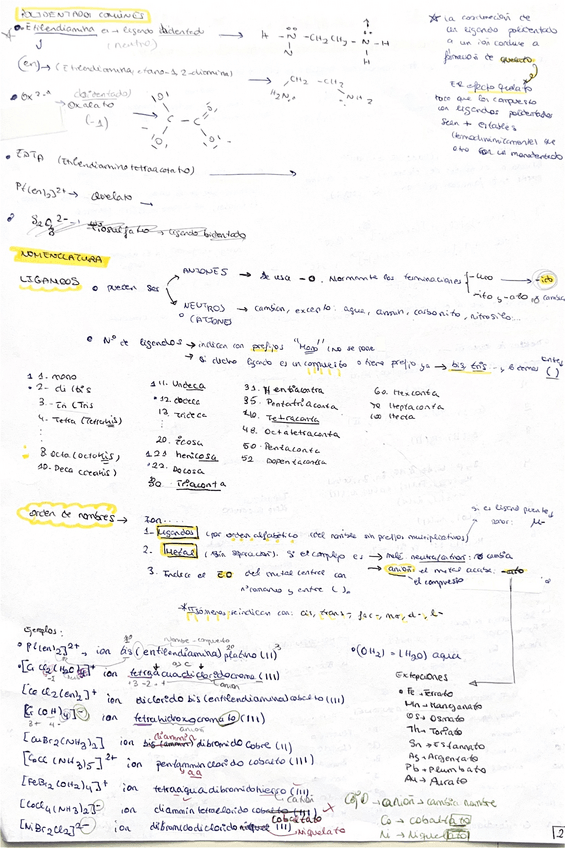 POLIDENTADOS COMUNES
Etilendiamina es → ligando bidentado
(neutro)
H - N - CH2CH2 - N - H
H H
(en) → (Etilendiamina, etano-1,2-diamina)
CH2 CH2
H2N NH2
Ox 2-
(bidentado)
Oxalato
C - C
EDTA (Etilendiaminotetraacetato)
Pt(en)2]2+ → Quelato
S2O3 2- → Tiosulfato, ligando bidentado
* La coordinación de
un ligando polidentado
a un ion conduce a
formación de quelato
El efecto quelato
hace que los compuestos
con ligandos polidentados
sean + estables
(termodinámicamente) que
otro con lo monodentado
NOMENCLATURA
LIGANDOS
pueden ser
ANIONES → Se usa -o. Normalmente las terminaciones
-uro → -ido
-ito y -ato no cambia
NEUTROS → cambian, excepto: agua, amin, carbonilo, nitrosilo...
CATIONES
Nº de ligandos → indican con prefijos "Mono" (no se pone
Si dicho ligando es un compuesto o tiene prefijo ya → bis, tris... y ( )
1. mono
2- di (bis
3. tri (Tris
4. Tetra (Tetrakis)
8 Octa (octakis)
10. Deca (decakis)
11. Undeca
12. Dodeca
13. Trideca
20. Icosa
21 henicosa
22. Docosa
30. Triaconta
31. Hentriaconta
35. Pentatriaconta
40. Tetraconta
48. Octatetraconta
50. Pentaconta
52 Dopentaconta
60. Hexaconta
70 Heptaconta
100 Hecta
Orden de nombres →
Ion....
1- Ligandos (por orden alfabético (del nombre sin prefijos multiplicativos)
si es ligand puente,
poner: μ-
2. Metal (sin separación). Si el complejo es → molé. neutra/cation: no cambia
→ anión: el metal acaba: -ato
el compuesto
3. Indica el EO del metal central con
nº romanos y entre ( ).
* Isómeros se indican con: cis, trans-, fac-, mer, d-, l-
Ejemplos:
Pt(en)2]2+, ion bis(entilendiamina) platino (II)
[Cr Cl2(H2O)4]+ ion tetraacuadiclorido cromo (III)
[Co Cl2(en)2]+ ion diclorido bis(entilendiamina) cobalto (III)
[Cr (OH)4]- ion tetrahidroxocromato (III)
[CuBr2(NH3)2] ion diammin dibromido cobre (II)
[CoCl(NH3)5]2+ ion pentammin clorido cobalto (III)
[FeBr2(OH2)4]+ ion tetraaqua dibromido hierro (III)
[CoCl4(NH3)2]- ion diammintetraclorido cobaltato (III)
[NiBr2Cl2]2- ion dibromidodiclorido niquelato (II)
(OH2) = (H2O) agua
Excepciones
Fe - Ferrato
Mn - Manganato
Os - Osmato
Sn - Estannato
Ag - Argentato
Pb - Plumbato
Au - Aurato
→ anión → cambia nombre
Co → cobaltato
Ni → niquelato
2